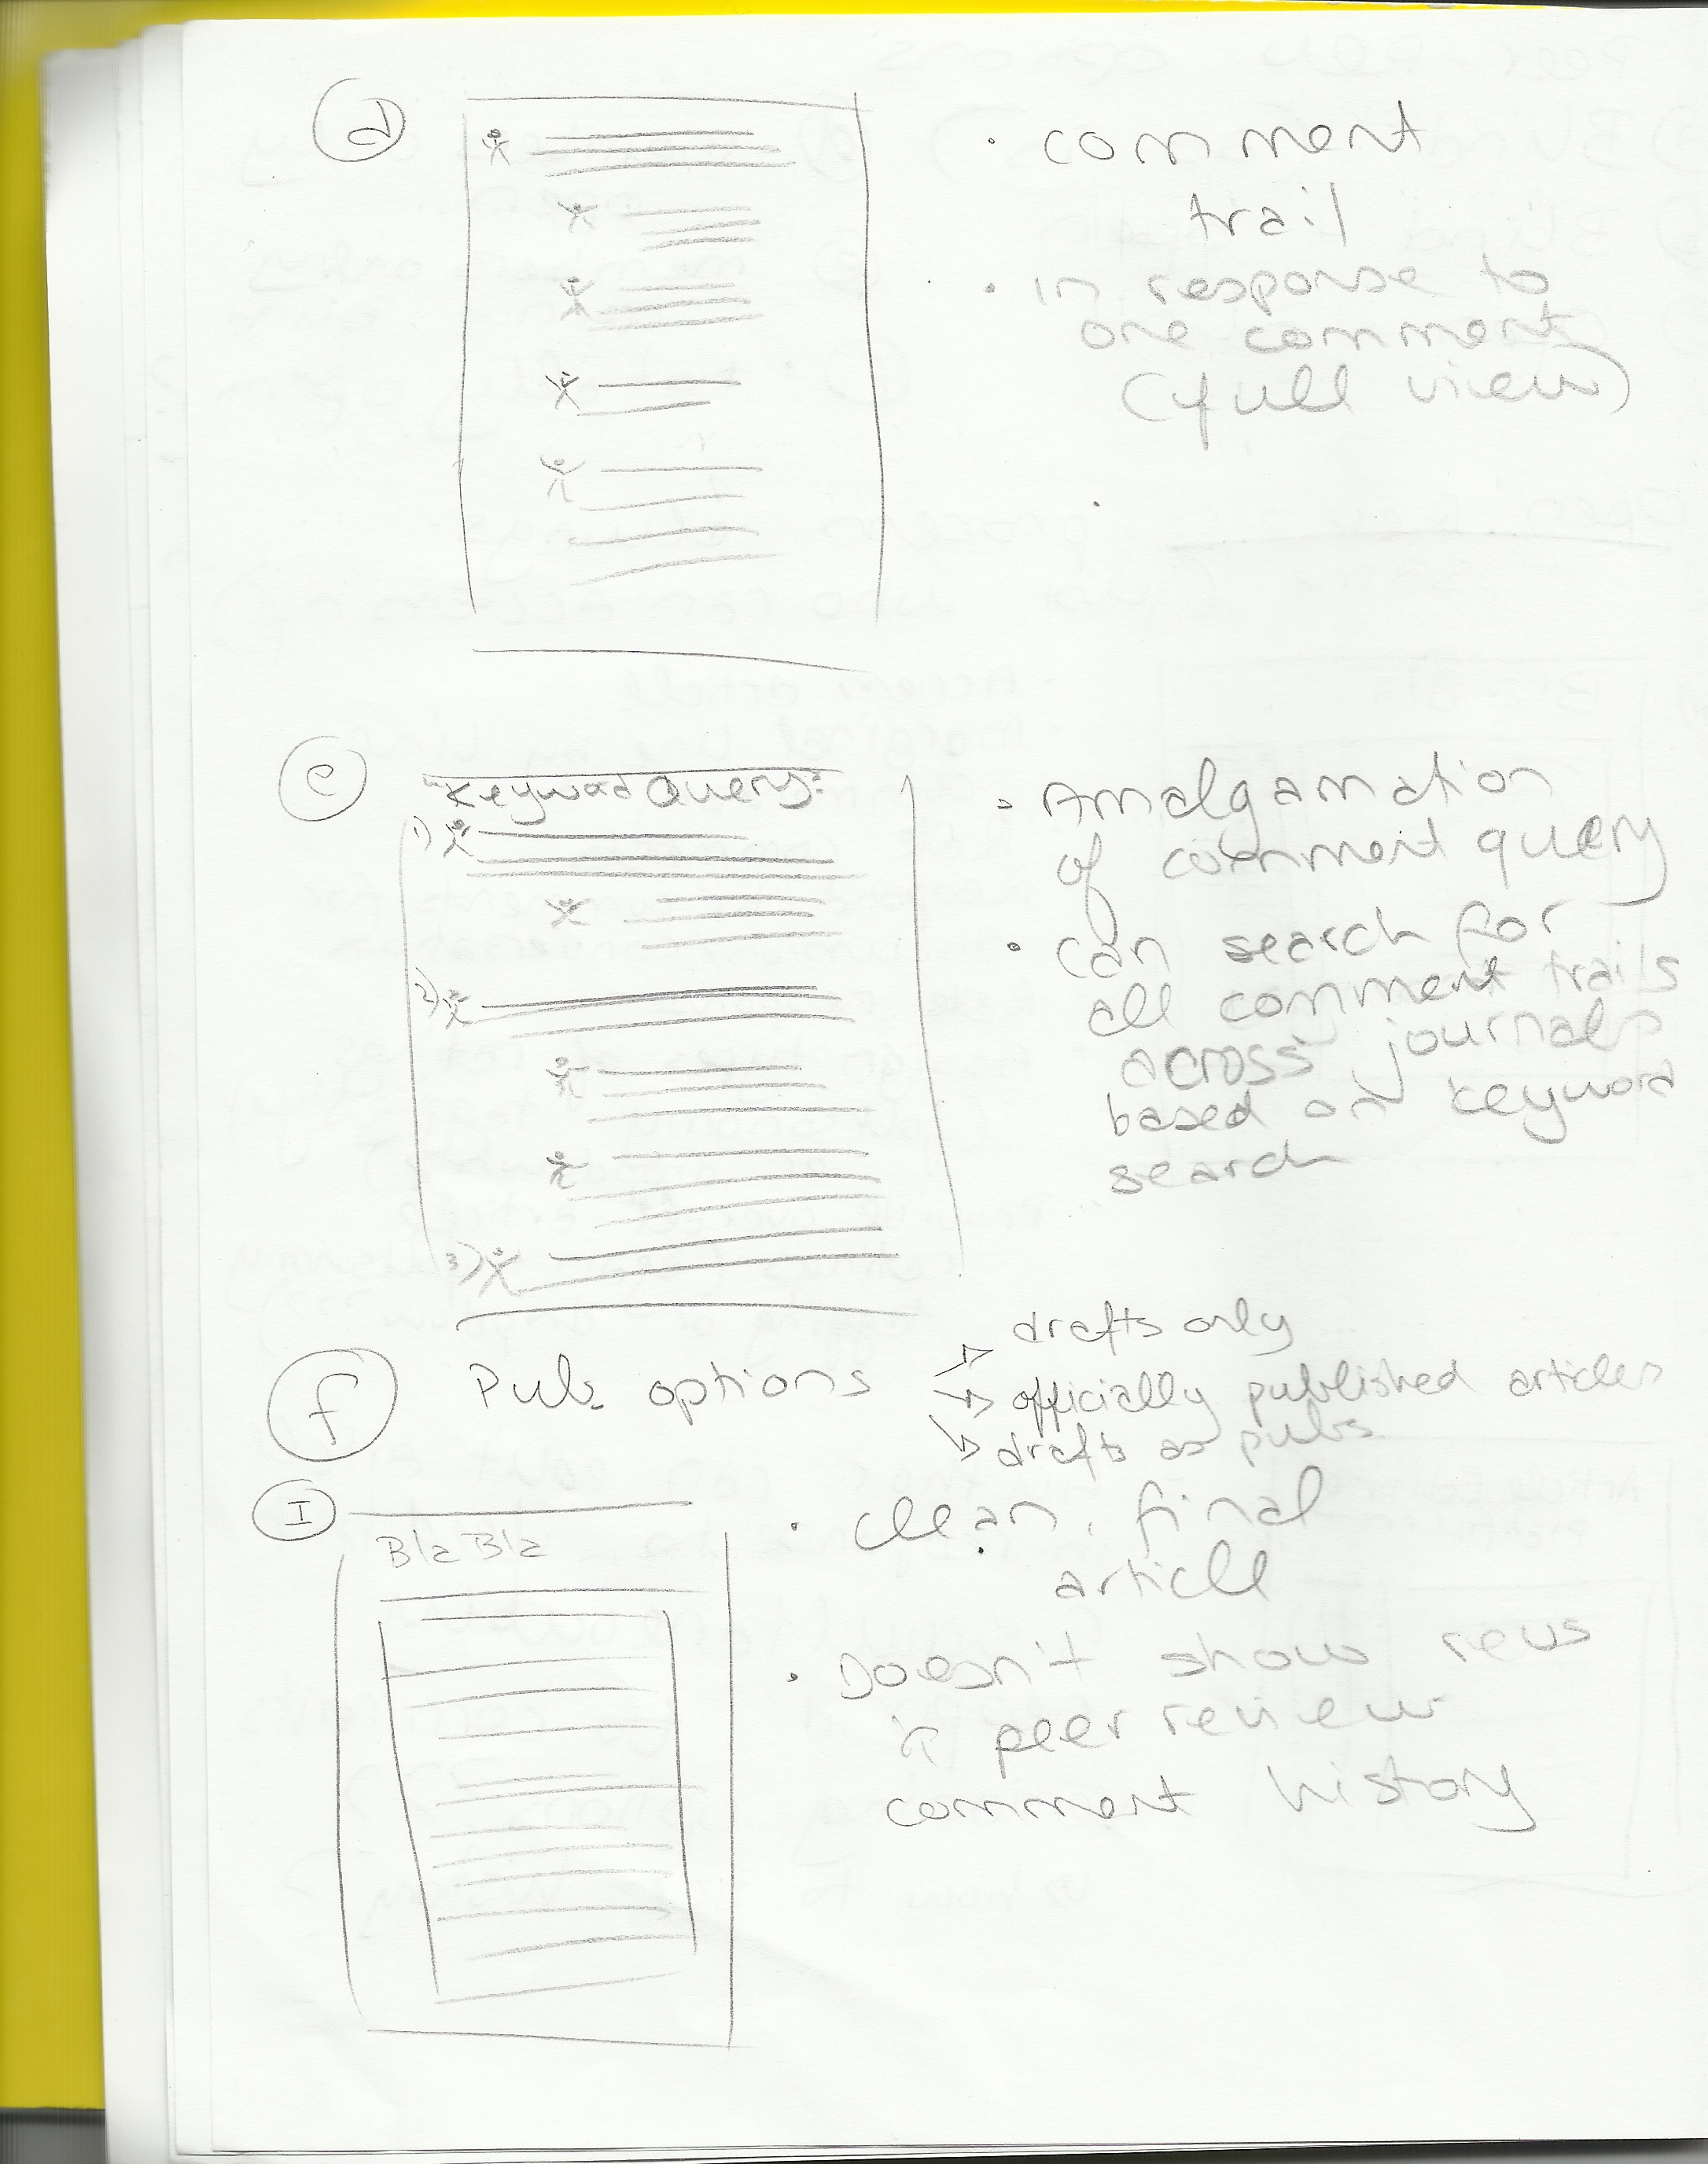 d
• comment
trail
• in response to
one comment
(full view)
e
"Keyword Query"
1)
2)
3)
• Amalgamation
of comment query
• Can search for
all comment trails
across journals
based on keyword
search
f Pub. options → drafts only
→ officially published articles
→ drafts as pubs
I
Bla Bla
• clean, final
article
• Doesn't show revs
peer review
comment history